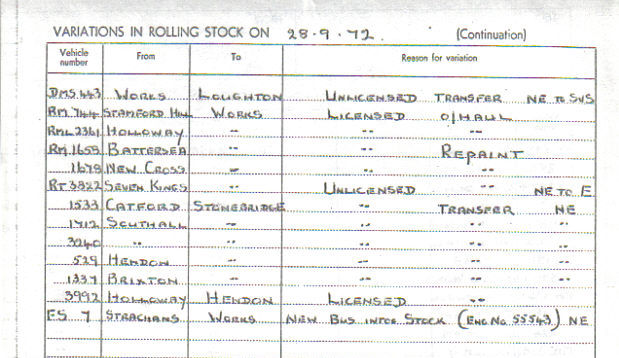 VARIATIONS IN ROLLING STOCK ON 28.9.72. (Continuation)
Vehicle number From To Reason for variation
DMS 443 WORKS LOUGHTON UNLICENSED TRANSFER NE TO SVS
RM 744 STAMFORD HILL WORKS LICENSED O/HAUL
RML 2361 HOLLOWAY " " "
RM 1658 BATTERSEA " " REPAINT
1678 NEW CROSS " " "
RT 3822 SEVEN KINGS " UNLICENSED " NE TO E
1533 CATFORD STONEBRIDGE " TRANSFER NE
1712 SOUTHALL " " " "
3240 " " " " "
529 HENDON " " " "
1337 BRIXTON " " " "
3992 HOLLOWAY HENDON LICENSED "
FS 7 STRACHANS WORKS NEW BUS INTO STOCK (ENG NO 55543) NE